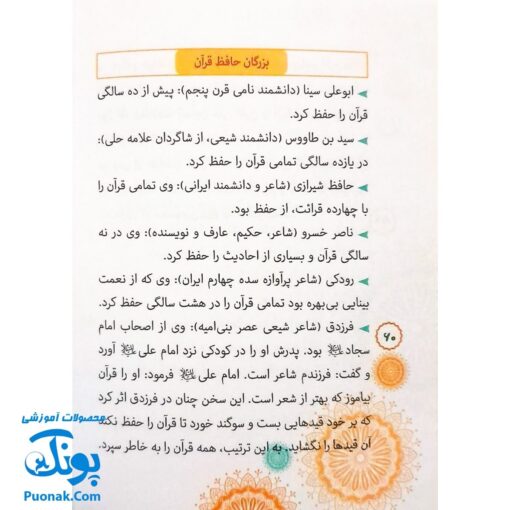 بزرگان حافظ قرآن
ابوعلی سینا (دانشمند نامی قرن پنجم): پیش از ده سالگی
قرآن را حفظ کرد.
سید بن طاووس (دانشمند شیعی، از شاگردان علامه حلی):
در یازده سالگی تمامی قرآن را حفظ کرد.
حافظ شیرازی (شاعر و دانشمند ایرانی): وی تمامی قرآن را
با چهارده قرائت، از حفظ بود.
ناصر خسرو (شاعر، حکیم، عارف و نویسنده): وی در نه
سالگی قرآن و بسیاری از احادیث را حفظ کرد.
رودکی (شاعر پرآوازه سده چهارم ایران): وی که از نعمت
بینایی بی‌بهره بود تمامی قرآن را در هشت سالگی حفظ کرد.
فرزدق (شاعر شیعی عصر بنی‌امیه): وی از اصحاب امام
سجاد بود. پدرش او را در کودکی نزد امام علی آورد
و گفت: فرزندم شاعر است. امام علی فرمود: او را قرآن
بیاموز که بهتر از شعر است. این سخن چنان در فرزدق اثر کرد
که بر خود قیدهایی بست و سوگند خورد تا قرآن را حفظ نکند
آن قیدها را نگشاید. به این ترتیب، همه قرآن را به خاطر سپرد.
۶۰
محصولات آموزشی
پونک
Puonak.Com